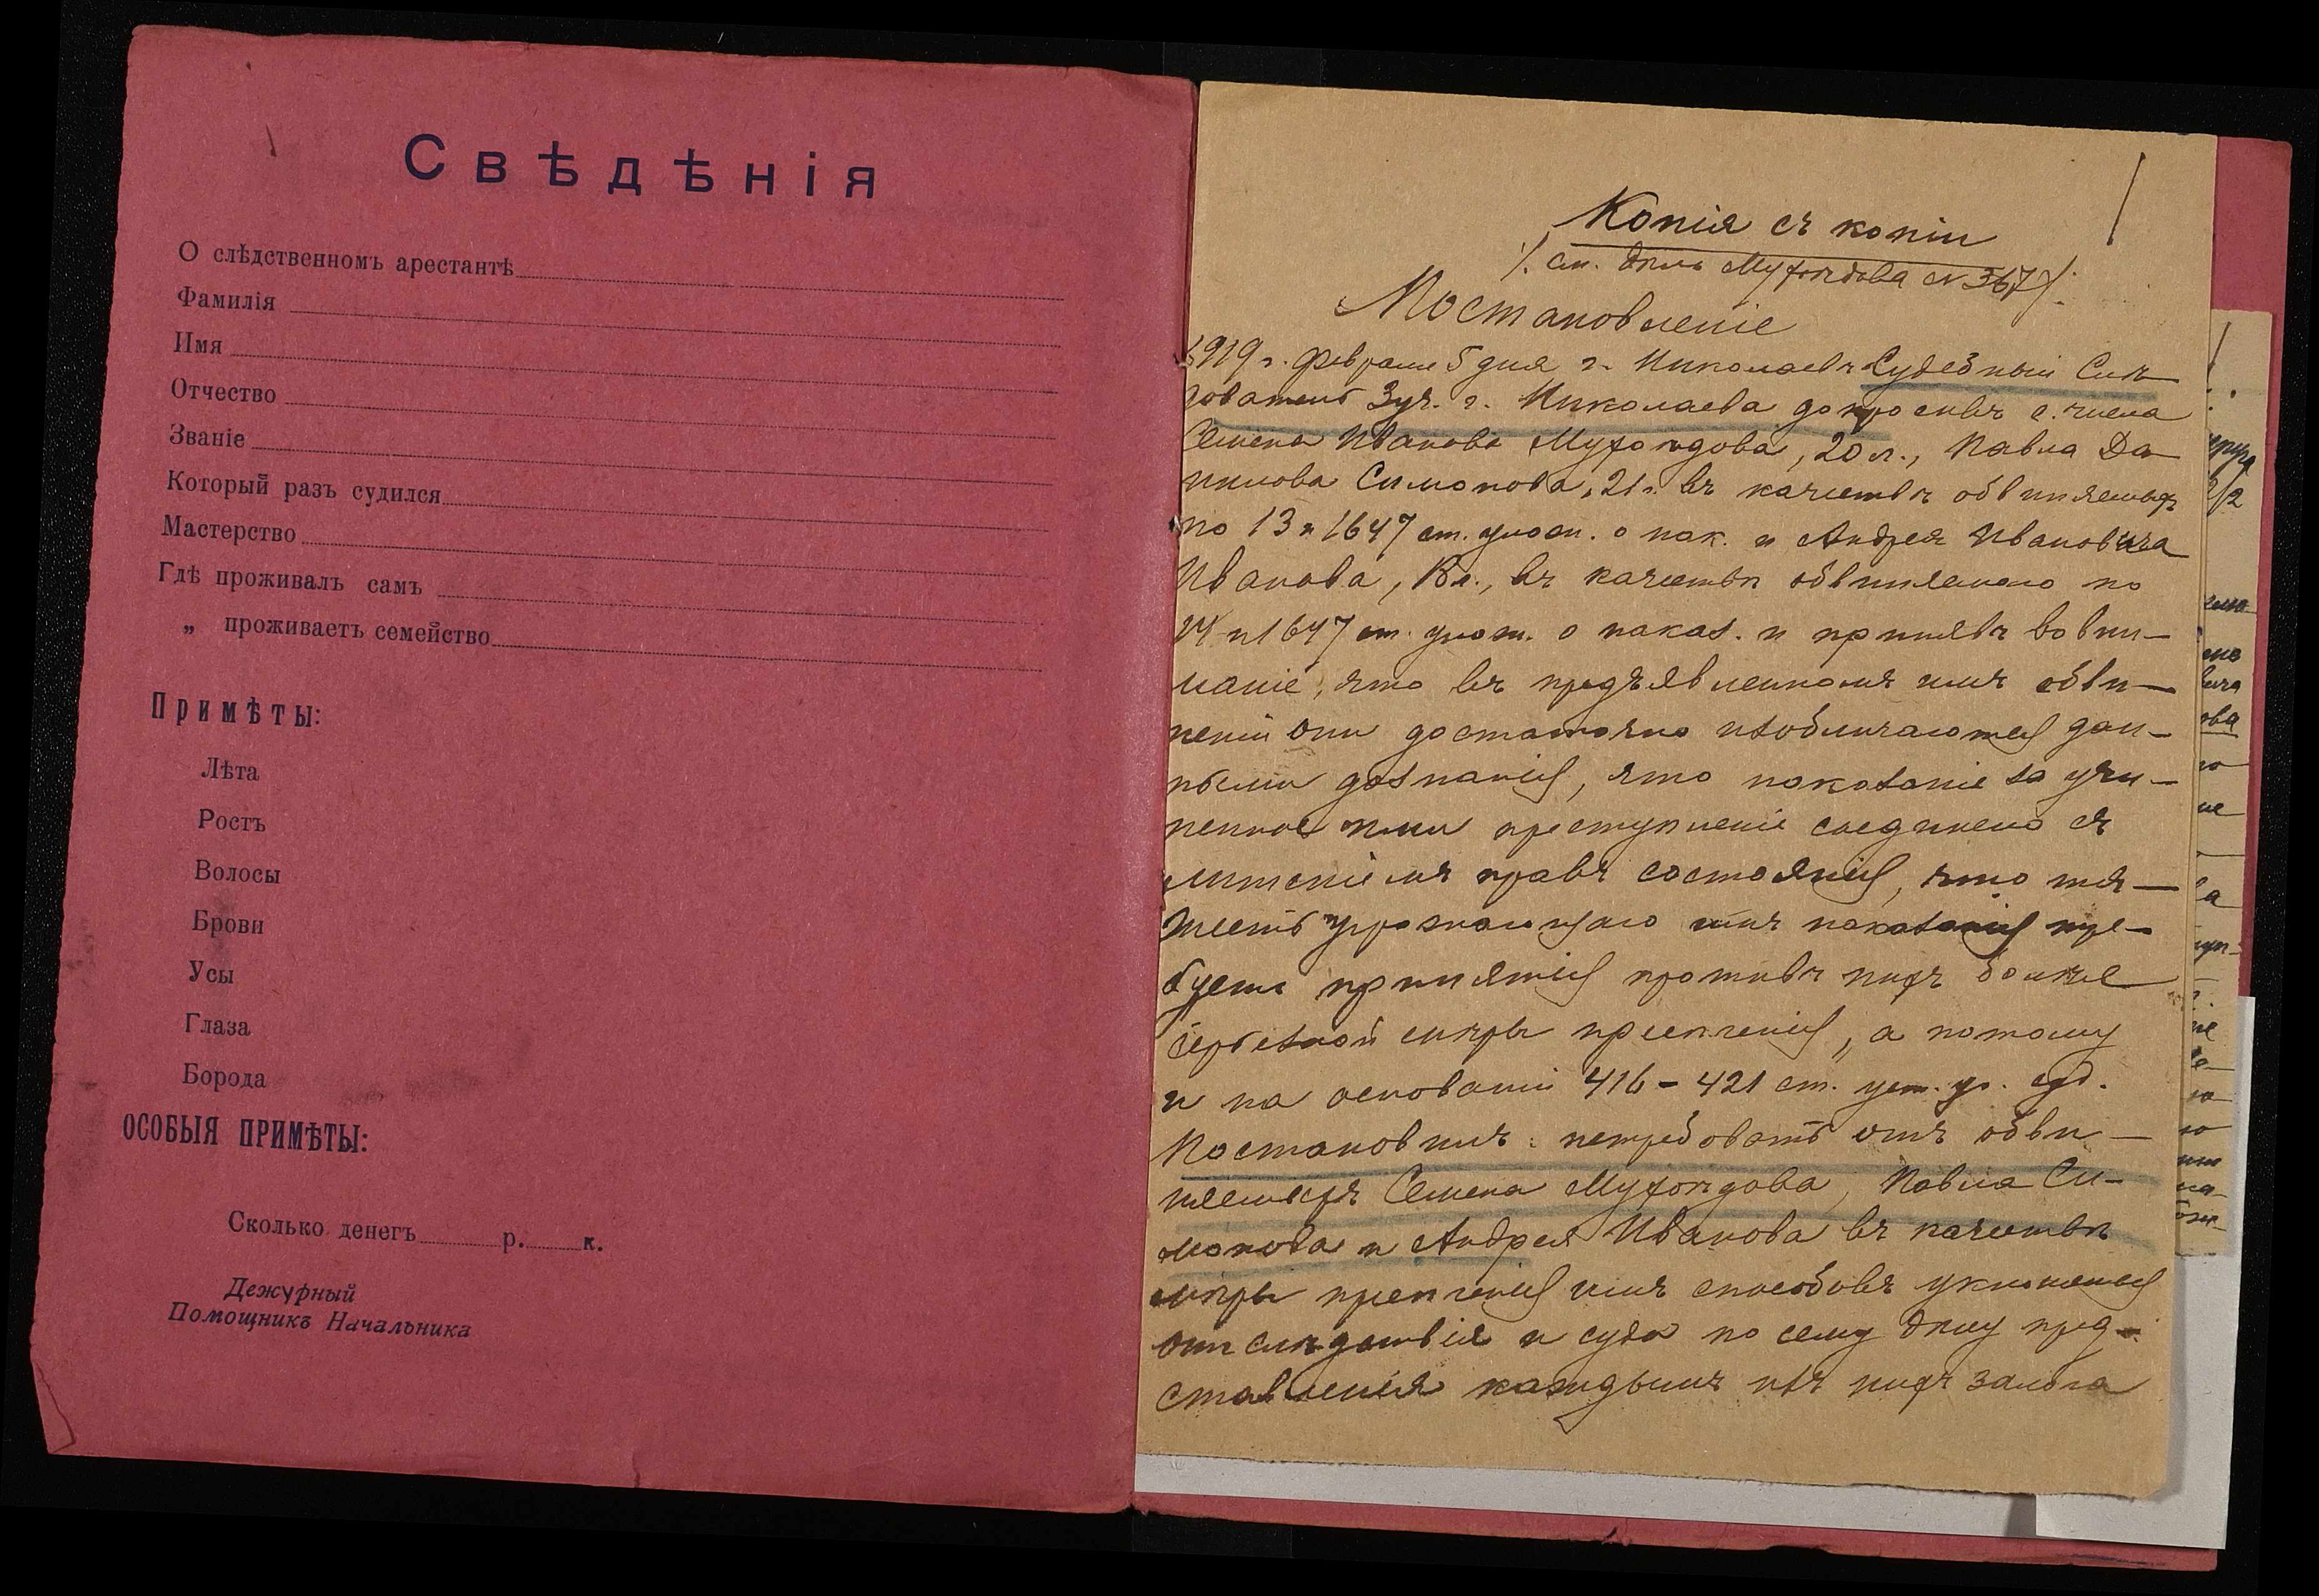 Свѣдѣнія
О слѣдственномъ арестантѣ
Фамилія
Имя
Отчество
Званіе
Который разъ судился
Мастерство
Гдѣ проживалъ самъ
„ проживаетъ семейство
Примѣты:
Лѣта
Ростъ
Волосы
Брови
Усы
Глаза
Борода
ОСОБЫЯ ПРИМѢТЫ:
Сколько денегъ р. к.
Дежурный
Помощникъ Начальника
Копія съ копіи
/. см. дѣло Мухоѣдова № 367/.
Постановленіе
1919 г. февраля 5 дня г. Николаевъ Судебный Слѣ-
дователь 3 уч. г. Николаева допросивъ
Семена Иванова Мухоѣдова, 20 л., Павла Да-
нилова Симонова, 21 г. въ качествѣ обвиняемыхъ
по 13 и 1647 ст. улож. о нак. и Андрея Ивановича
Иванова, въ качествѣ обвиняемаго по
14 и 1647 ст. улож. о наказ. и принявъ во вни-
маніе, что въ предъявленномъ имъ обви-
неніи они достаточно изобличаются дан-
ными дознанія, что наказаніе за учи-
ненное ими преступленіе соединено съ
лишеніемъ правъ состоянія, что тя-
жесть угрожающаго имъ наказанія тре-
буетъ принятія противъ нихъ болѣе
серьезной мѣры пресѣченія, а потому
и на основаніи 416 – 421 ст. уст. уг. суд.
Постановилъ: истребовать отъ обви-
няемыхъ Семена Мухоѣдова, Павла Си-
монова и Андрея Иванова въ качествѣ
мѣры пресѣченія имъ способовъ уклоняться
отъ слѣдствія и суда по сему дѣлу пред-
ставленія каждымъ изъ нихъ залога